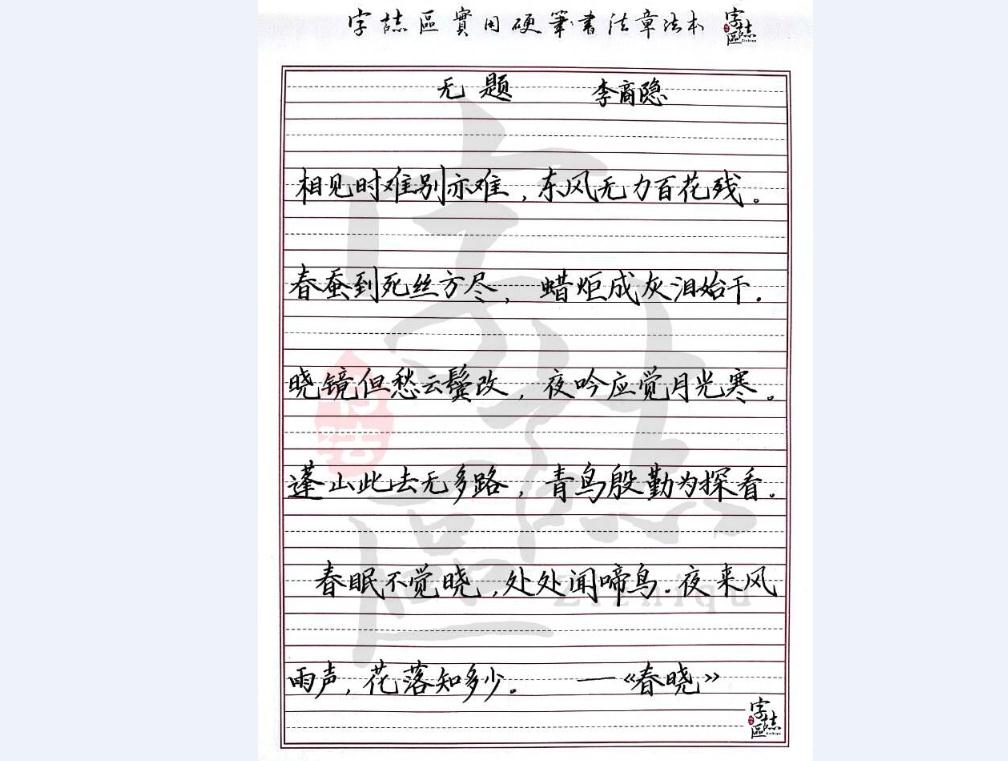 字誌區實用硬筆書法章法本 字誌區
无题 李商隐
相见时难别亦难,东风无力百花残。
春蚕到死丝方尽,蜡炬成灰泪始干.
晓镜但愁云鬓改,夜吟应觉月光寒。
蓬山此去无多路,青鸟殷勤为探看.
春眠不觉晓,处处闻啼鸟.夜来风
雨声,花落知多少。 —《春晓》
字誌區
字誌區
Zizhiqu